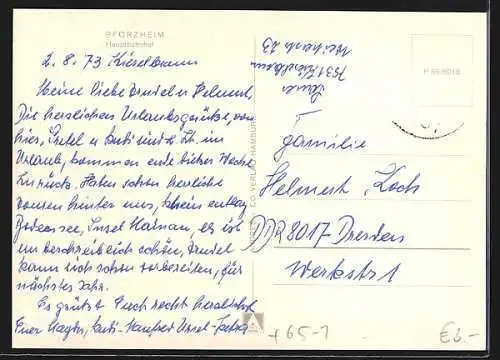 PFORZHEIM
Hauptbahnhof
2.8.73 Kieselbronn
Meine liebe Trudel u Helmut,
Die herzlichen Urlaubsgrüße von
hier, Gretel u sind z. Zt. im
Urlaub, kommen ende dieser Woche
zurück. Haben schon herrliche
touren hinter uns, Rhein entlang
Bodensee, Insel Mainau, es ist
unbeschreiblich schön, Trudel
kann sich schon vorbereiten, für
nächstes Jahr.
Es grüßt Euch recht herzlichst
Eure Manfred Ursel
7531 Kieselbronn
23
P 66/6018
CO VERLAG HAMBURG
Familie
Helmut Koch
DDR 8017 Dresden
Werkstr 1
+65-1
€3.-